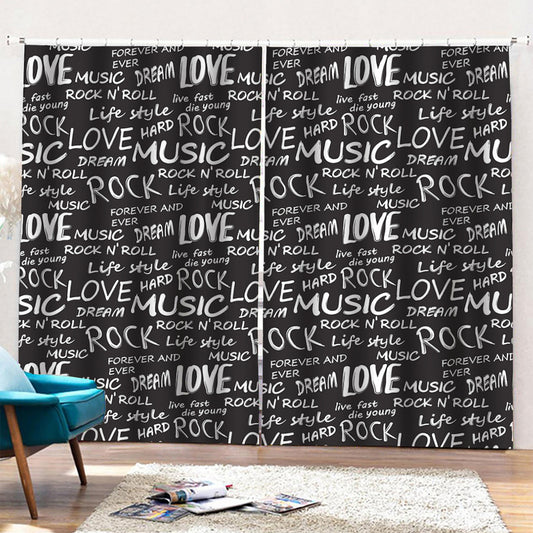 MUSIC FOREVER AND LOVE
LOVE MUSIC EVER DREAM MUSIC
ROCK N' ROLL live fast ROCK N' ROLL
die young Life style HARD ROCK
ROCK LOVE
MUSIC DREAM MUSIC
ROCK N' ROLL
Life style ROCK Life style
MUSIC FOREVER AND LOVE
LOVE MUSIC EVER DREAM MUSIC
live fast ROCK N' ROLL
die young Life style HARD ROCK
ROCK LOVE
MUSIC DREAM MUSIC
ROCK N' ROLL
Life style ROCK Life style
MUSIC FOREVER AND MUSIC
EVER DREAM LOVE MUSIC
live fast ROCK N' ROLL
die young Life style
Life style HARD ROCK
FOREVER AND LOVE MUSIC
EVER DREAM MUSIC DREAM
live fast ROCK N' ROLL
die young Life style
HARD ROCK LOVE
MUSIC DREAM MUSIC
ROCK N' ROLL
ROCK Life style ROCK
FOREVER AND LOVE MUSIC
EVER DREAM MUSIC FOREVER AND
EVER
live fast ROCK N' ROLL
die young Life style
HARD ROCK LOVE
MUSIC DREAM MUSIC
ROCK N' ROLL
ROCK Life style ROCK
FOREVER AND MUSIC FOREVER AND
EVER DREAM LOVE MUSIC EVER DREAM
live fast ROCK N' ROLL
die young Life style
HARD ROCK LOVE